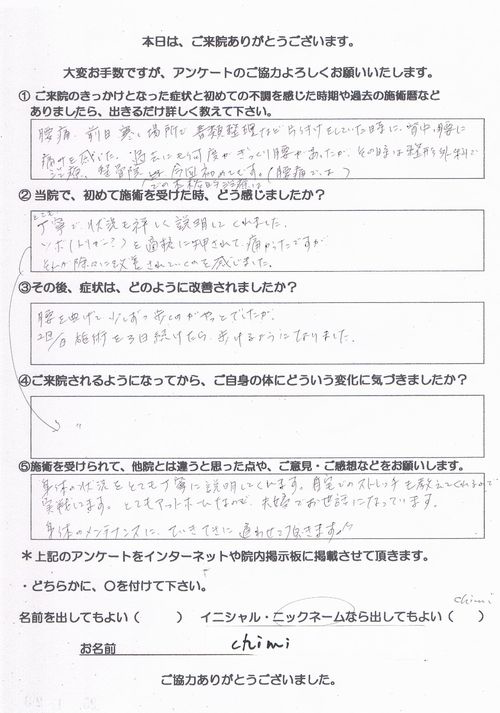 本日は、ご来院ありがとうございます。
大変お手数ですが、アンケートのご協力よろしくお願いいたします。
① ご来院のきっかけとなった症状と初めての不調を感じた時期や過去の施術暦など
ありましたら、出きるだけ詳しく教えて下さい。
腰痛、前日寒い場所で書類整理など片付けをしていた時に、背中、腰に
痛みを感じた。過去にも何度かぎっくり腰があったが、その時は整形外科で
治療、整骨院 は今回初めてです。(腰痛では)
での本格的治療は
② 当院で、初めて施術を受けた時、どう感じましたか?
とても
丁寧で、状況も詳しく説明してくれました。
ツボ( ?)を適格に押されて、痛かったですが
それが除々に改善されていくのを感じました。
③その後、症状は、どのように改善されましたか?
腰を曲げて少しずつ歩くのがやっとでしたが、
2回/日 施術を3日続けたら、歩けるようになりました。
④ご来院されるようになってから、ご自身の体にどういう変化に気づきましたか?
〃
⑤施術を受けられて、他院とは違うと思った点や、ご意見・ご感想などをお願いします。
身体の状況をとても丁寧に説明してくれます。自宅でのストレッチも教えてくれるので
実践してます。とてもアットホームなので、夫婦でお世話になっています。
身体のメンテナンスに、ていきてきに通わせて頂きます!
＊上記のアンケートをインターネットや院内掲示板に掲載させて頂きます。
・どちらかに、〇を付けて下さい。
chimi
名前を出してもよい( ) イニシャル・ニックネームなら出してもよい( )
お名前 chimi
ご協力ありがとうございました。